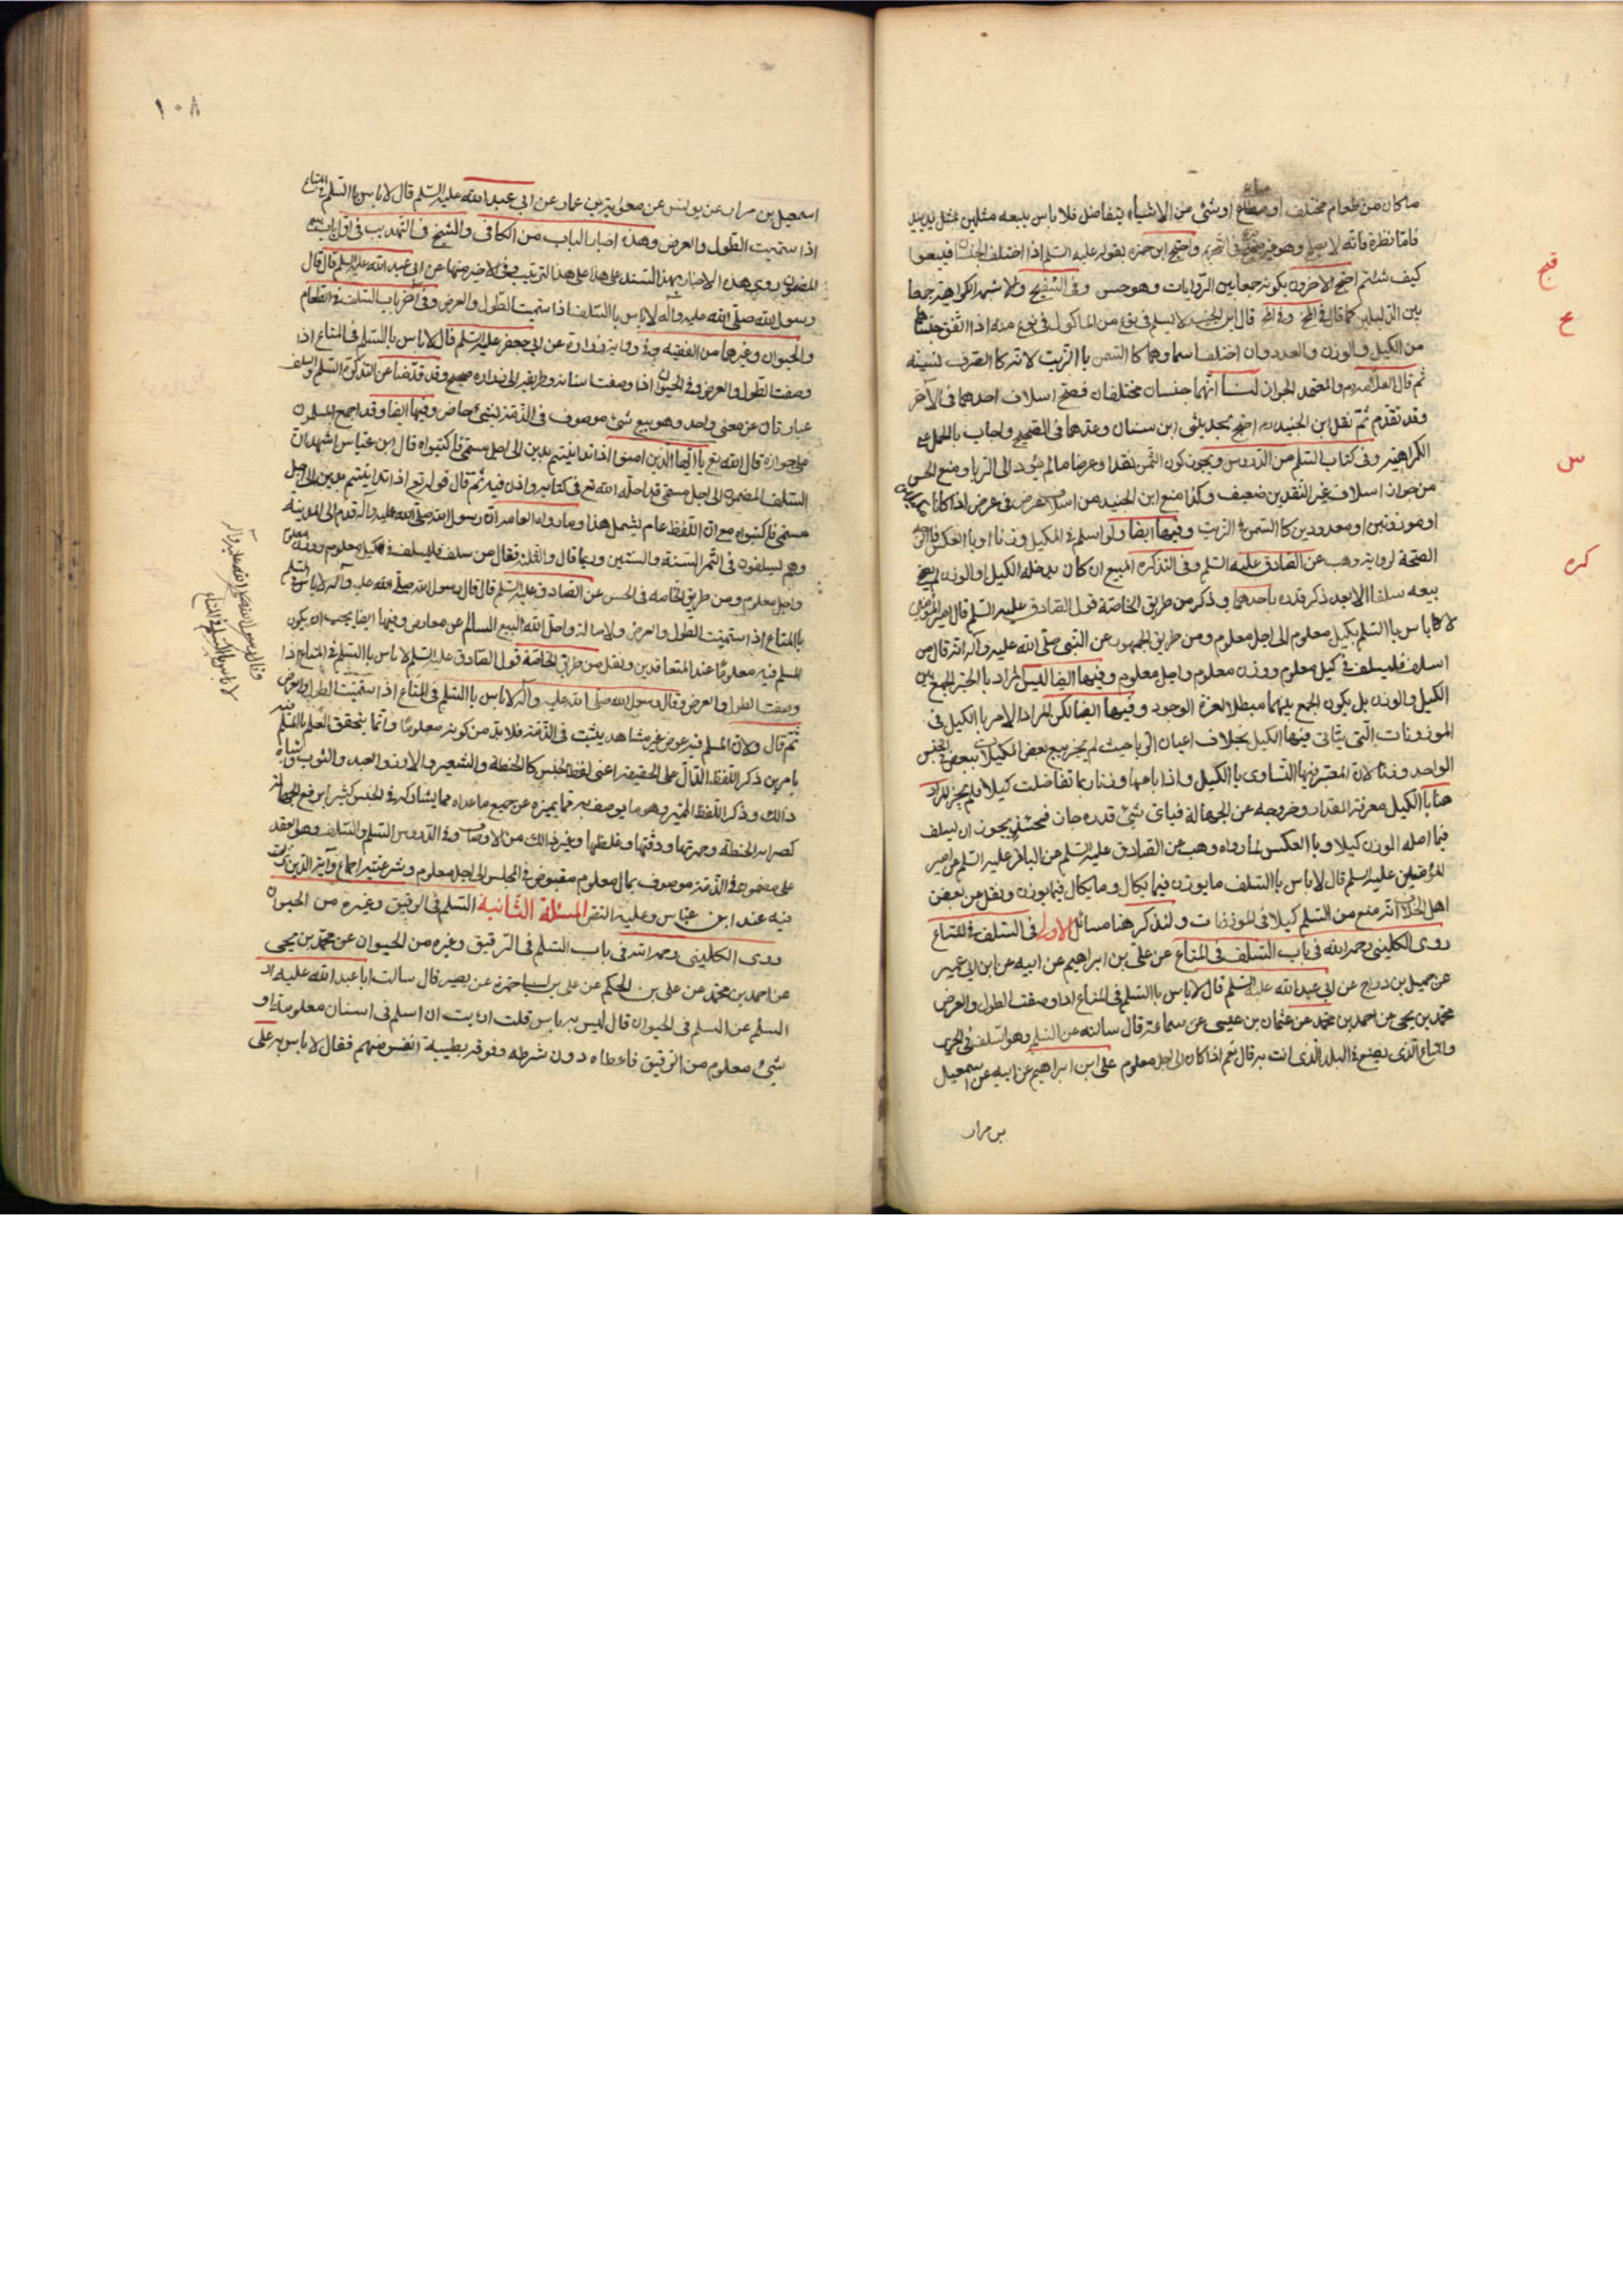 ما كان من طعام مختلف او متاع او شئ من الاشياء يتفاضل فلا باس ببيعه مثلين بمثل يدا بيد
فاما نظرة فانه لا يصلح وهو غير صريح فى التحريم واحتج ابن حمزه بقوله عليه السلم اذا اختلف الجنسان فبيعوا
كيف شئتم احتج الاخرون بكونه جمعا بين الروايات وهو حسن وفى التنقيح ولا شهر الكراهية جمعا
بين الدليلين كما قال فى قال ابن الجنيد لا يسلم فى نوع من الماكول فى نوع منه اذا اتفق جنسا هما
من الكيل والوزن والعدد وان اختلف اسما وهما كالسمن باالزيت لانه كالصرف نسيئة
ثم قال العلامه والمعتمد الجواز لنا انهما جنسان مختلفان فصح اسلاف احدهما فى الآخر
وقد تقدم ثم نقل ابن الجنيد احتج بحديثى ابن سنان وعدهما فى الصحيح واجاب بالحمل على
الكراهية وفى كتاب السلم من الدروس ويجوز كون الثمن نقدا وعرضا ما لم يؤد الى الربا ومنع الحسن
من جواز اسلاف غير النقدين ضعيف وكذا منع ابن الجنيد من اسلاف عرض فى عرض اذا كانا مكيلين
او موزونين او معدودين كا السمن فى الزيت وفيها ايضا ولو اسلم فى المكيل وزنا او باالعكس فالوجه
الصحة لرواية وهب عن الصادق عليه السلم وفى التذكره المبيع ان كان يدخله الكيل او الوزن لم يصح
بيعه سلفا الا بعد ذكر قدره باحدهما وذكر من طريق الخاصة قول الصادق عليه السلم قال امير المؤمنين
لا باس باالسلم بكيل معلوم الى اجل معلوم ومن طريق الجمهور عن النبى صلى الله عليه وآله انه قال من
اسلف فليسلف فى كيل معلوم ووزن معلوم واجل معلوم وفيها ايضا ليس المراد باالخبر الجمع بين
الكيل والوزن بل يكون الجمع بينهما مبطلا لعزة الوجود وفيها ايضا لكن المراد الامر باالكيل فى
الموزونات التى يتاتى فيها الكيل بخلاف اعيان الربا حيث لم يجز بيع بعض المكيلات ببعض فى الجنس
الواحد وزنا لان المعتبر فيها التساوى باالكيل واذا باعها وزنا ربما تفاضلت كيلا فلم يجز والمراد
هنا باالكيل معرفة المقدار وخروجه عن الجهالة فباى شئ قدره جاز فحينئذ يجوز ان يسلف
فيما اصله الوزن كيلا وباالعكس لما رواه وهب عن الصادق عليه السلم عن الباقر عليه السلم عن امير
المؤمنين عليه السلم قال لا باس باالسلف ما يوزن فيما يكال وما يكال فيما يوزن ونقل عن بعض
اهل الخلاف انه منع من السلم كيلا فى الموزونات ولنذكر هنا مسائل الاولى فى السلف فى المتاع
روى الكلينى رحمه الله فى باب السلف فى المتاع عن على بن ابراهيم عن ابيه عن ابن ابى عمير
عن جميل بن دراج عن ابى عبد الله عليه السلم قال لا باس باالسلم فى المتاع اذا وصفت الطول والعرض
محمد بن يحيى عن احمد بن محمد عن عثمان بن عيسى عن سماعة قال سالته عن السلم وهو السلف فى الحرير
والمتاع الذى يصنع فى البلد الذى انت به قال نعم اذا كان الى اجل معلوم على ابن ابراهيم عن ابيه عن اسمعيل
بن مرار
قيح
ع
س
كره
١٠٨
اسمعيل بن مرار عن يونس عن معوية بن عمار عن ابى عبد الله عليه السلم قال لا باس باالسلم فى المتاع
اذا سميت الطول والعرض وهذه اخبار الباب من الكافى والشيخ فى التهذيب فى اول باب بيع
المضمون روى هذه الاخبار بهذا السند على هذا الترتيب وفى الاخير منها عن ابى عبد الله عليه السلم قال قال
رسول الله صلى الله عليه وآله لا باس باالسلف اذا سميت الطول والعرض وفى آخر باب السلف فى الطعام
والحيوان وغيرهما من الفقيه وفى رواية زرارة عن ابى جعفر عليه السلم قال لا باس باالسلم فى المتاع اذا
وصفت الطول والعرض وفى الحيوان اذا وصفت اسنانه وطريقه الى زراره صحيح وقد قدمنا عن التذكرة السلم والسلف
عبارتان عن معنى واحد وهو بيع شئ موصوف فى الذمة بشئ حاضر وفيها ايضا وقد اجمع المسلمون
على جوازه قال الله تع يا ايها الذين امنوا اذا تداينتم بدين الى اجل مسمى فاكتبوه قال ابن عباس اشهد ان
السلف المضمون الى اجل مسمى قد احله الله تع فى كتابه واذن فيه ثم قال قوله تع اذا تداينتم بدين الى اجل
مسمى فاكتبوه مع ان اللفظ عام يشمل هذا وما رواه العامه ان رسول الله صلى الله عليه وآله قدم الى المدينة
وهم يسلفون فى الثمر السنة والسنتين وربما قال والثلث فقال من سلف فليسلف فى كيل معلوم ووزن معلوم
واجل معلوم ومن طريق الخاصه فى الحسن عن الصادق عليه السلم قال قال رسول الله صلى الله عليه وآله لا باس السلم
باالمتاع اذا سميت الطول والعرض ولاصالة واحل الله البيع السالم عن معارض وفيها ايضا يجب ان يكون
المسلم فيه معلوما عند المتعاقدين ونقل من طريق الخاصة قول الصادق عليه السلم لا باس باالسلم فى المتاع اذا
وصفت الطول والعرض وقال رسول الله صلى الله عليه وآله لا باس باالسلم فى المتاع اذا سميت الطول والعرض
ثم قال ولان المسلم فيه عوض غير مشاهد يثبت فى الذمة فلا بد من كونه معلوما وانما يتحقق العلم باالمسلم فيه
بامرين ذكر اللفظ الدال على الحقيقة اعنى لفظ الجنس كا الحنطة والشعير والارز والعبد والثوب وشباه
ذالك وذكر اللفظ المميز وهو ما يوصف به مما يميزه عن جميع ما عداه مما يشاركه فى الجنس ليرتفع الجهالة
كصرابه الحنطة وحمرتها ودقتها وغلظها وغير ذالك من الاوصاف وفى الدروس السلم والسلف وهو العقد
على مضمون فى الذمة موصوف بمال معلوم مقبوض فى المجلس الى اجل معلوم وشرعيته اجماع وآية الدين نزلت
فيه عند ابن عباس وعليه النص المسئلة الثانية السلم فى الرقيق وغيره من الحيوان
روى الكلينى رحمه الله فى باب السلم فى الرقيق وغيره من الحيوان عن محمد بن يحيى
عن احمد بن محمد عن على بن الحكم عن على بن ابى حمزة عن بصير قال سالت ابا عبد الله عليه
السلم عن السلم فى الحيوان قال ليس به باس قلت ارايت ان اسلم فى اسنان معلومة او
شئ معلوم من الرقيق فاعطاه دون شرطه وفوقه بطيبة انفس منهم فقال لا باس به على
وقال رسول الله صلى الله عليه وآله
لا باس باالسلم فى المتاع